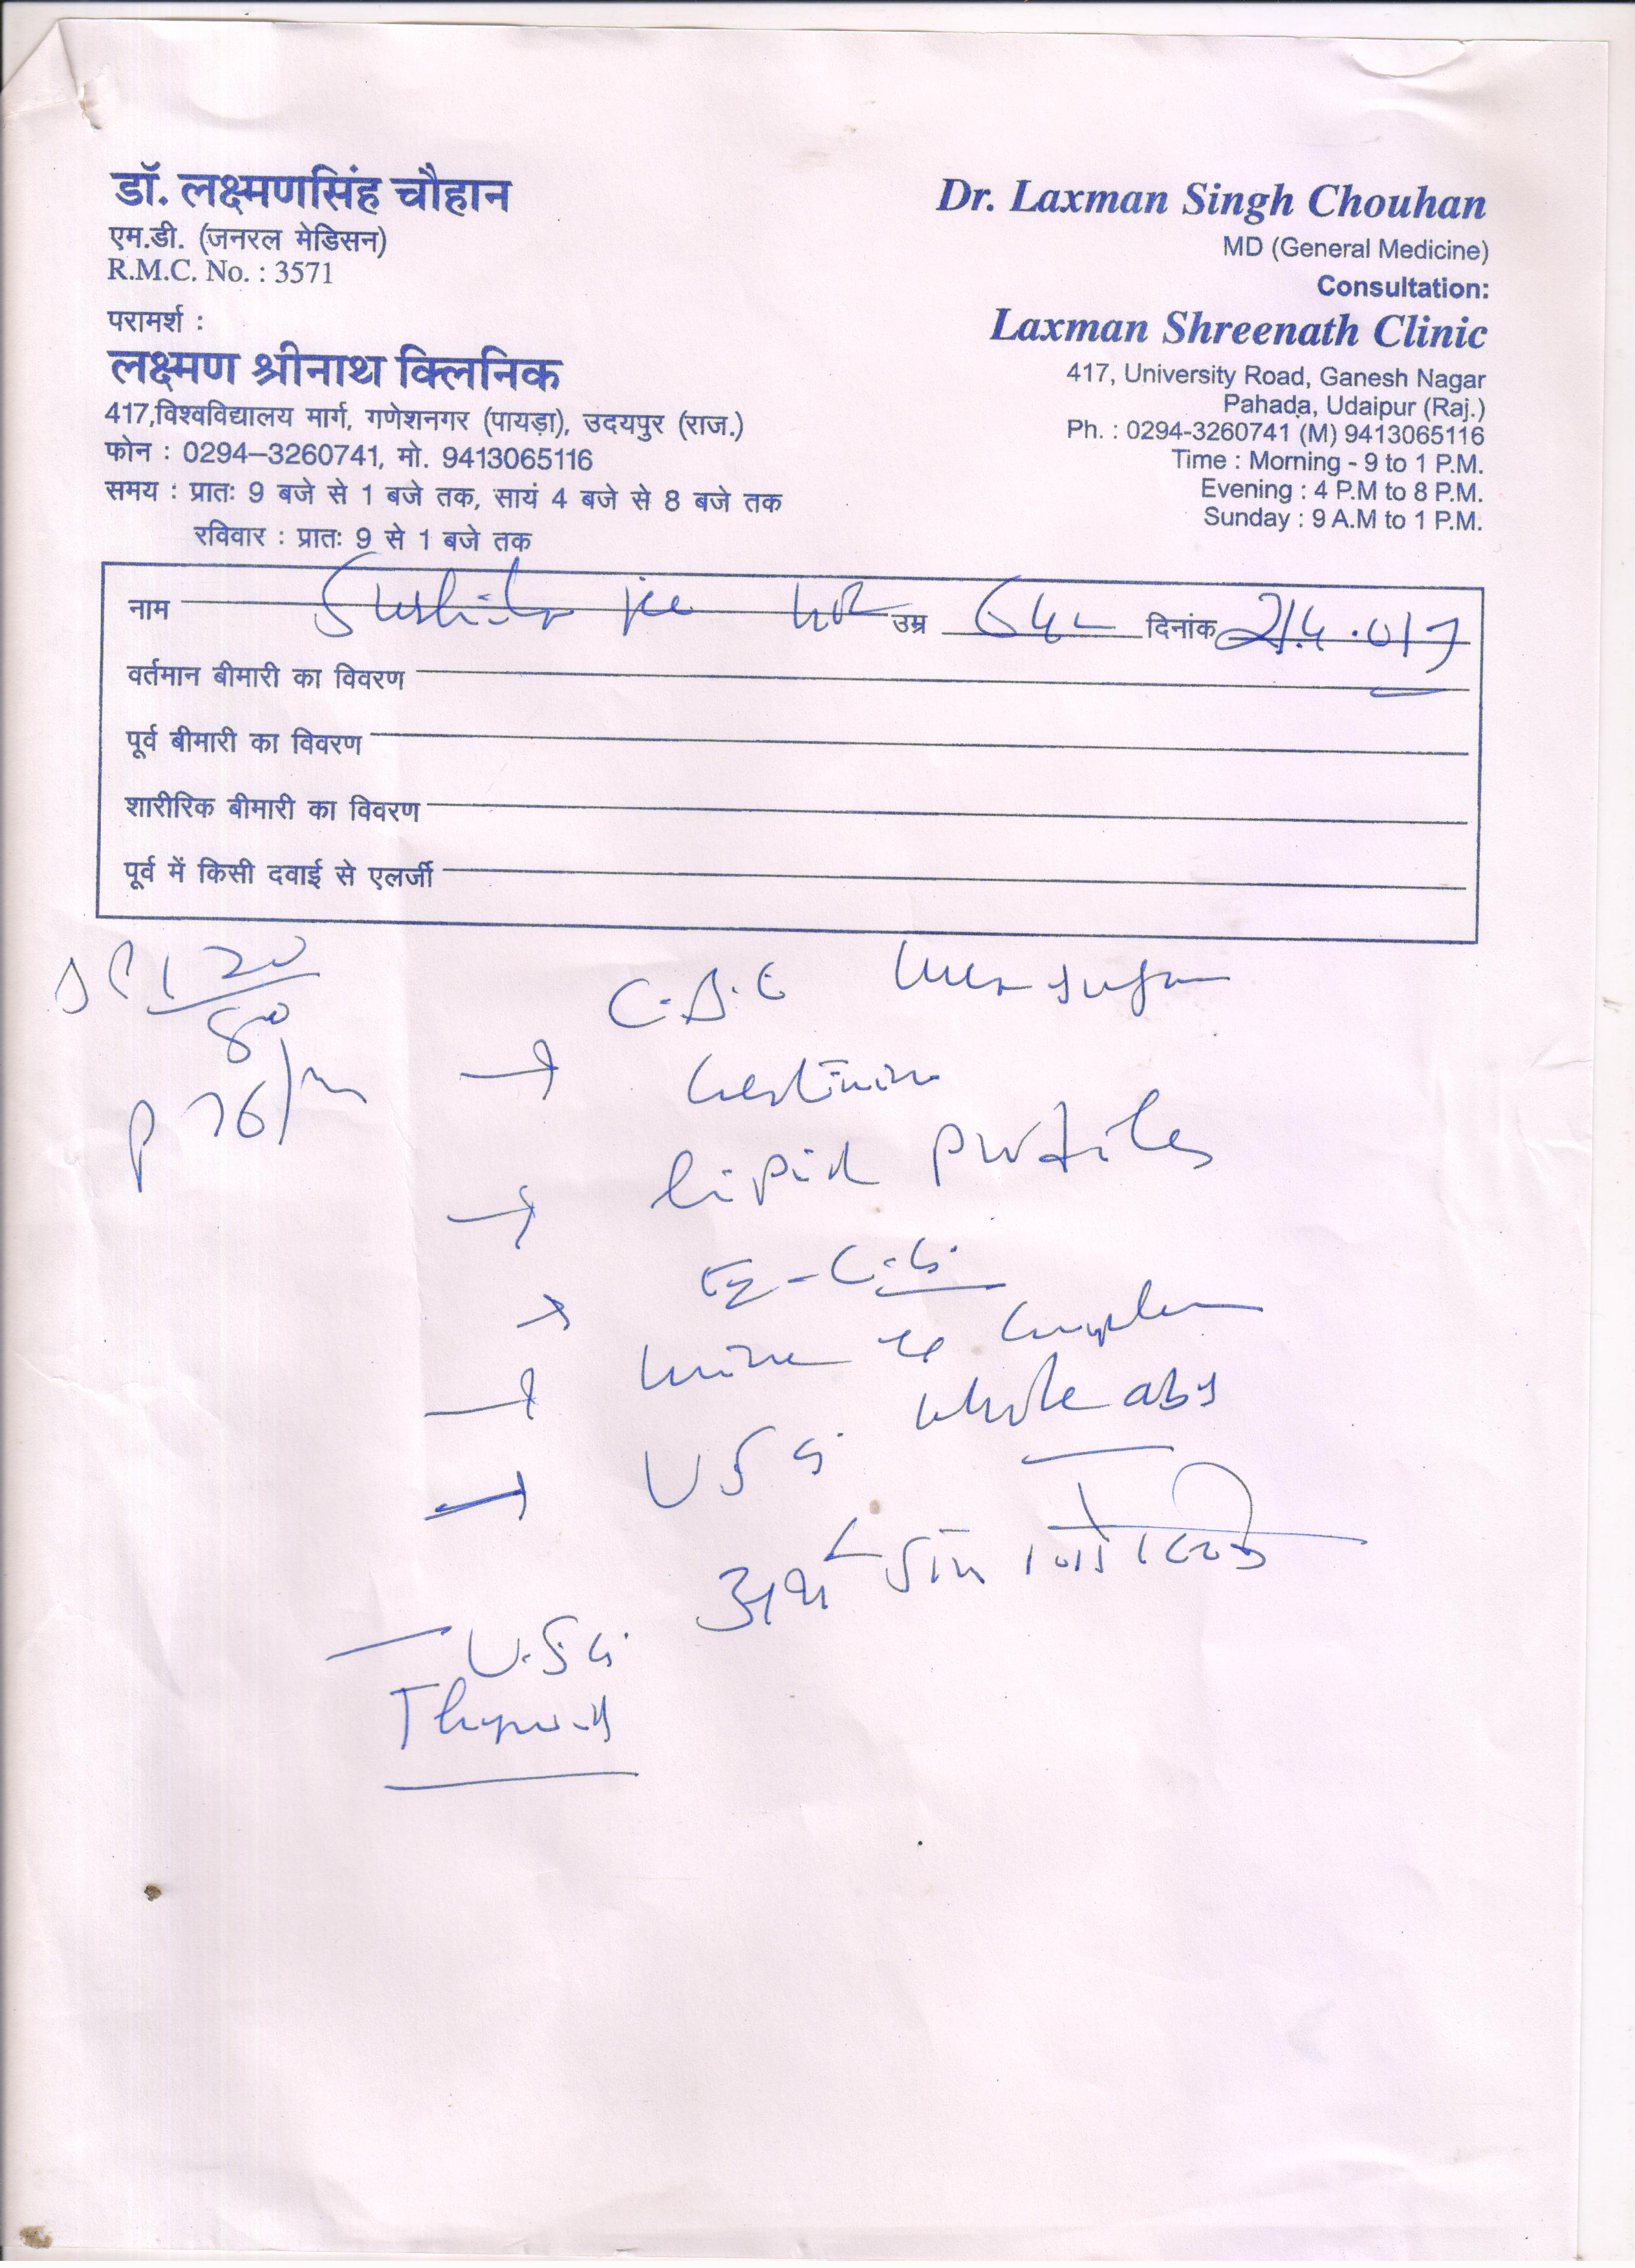 डॉ. लक्ष्मणसिंह चौहान
एम.डी. (जनरल मेडिसन)
R.M.C. No. : 3571
परामर्श :
लक्ष्मण श्रीनाथ क्लिनिक
417,विश्वविद्यालय मार्ग, गणेशनगर (पायड़ा), उदयपुर (राज.)
फोन : 0294–3260741, मो. 9413065116
समय : प्रातः 9 बजे से 1 बजे तक, सायं 4 बजे से 8 बजे तक
रविवार : प्रातः 9 से 1 बजे तक
Dr. Laxman Singh Chouhan
MD (General Medicine)
Consultation:
Laxman Shreenath Clinic
417, University Road, Ganesh Nagar
Pahada, Udaipur (Raj.)
Ph. : 0294-3260741 (M) 9413065116
Time : Morning - 9 to 1 P.M.
Evening : 4 P.M to 8 P.M.
Sunday : 9 A.M to 1 P.M.
नाम उम्र दिनांक
वर्तमान बीमारी का विवरण
पूर्व बीमारी का विवरण
शारीरिक बीमारी का विवरण
पूर्व में किसी दवाई से एलर्जी
120
80
P 76/m
C.B.C sugar
→
→ lipid profiles
→ E-C.G.
→ urine complete
→ USG. whole abd
U.S.G.
Thyroid